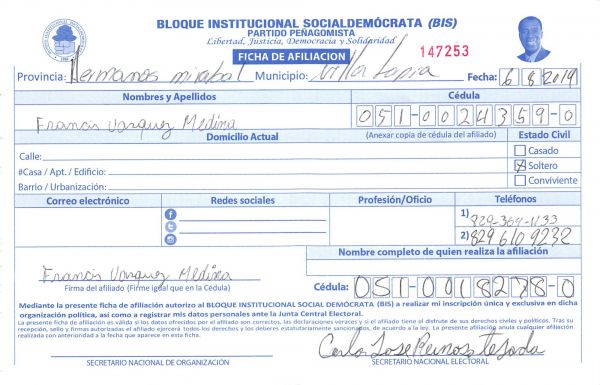 BLOQUE INSTITUCIONAL SOCIALDEMÓCRATA (BIS)
PARTIDO PEÑAGOMISTA
Libertad, Justicia, Democracia y Solidaridad
FICHA DE AFILIACION 147253
Provincia: Hermanas mirabal Municipio: Villa Tapia Fecha: 6/8/2019
Nombres y Apellidos Cédula
Francis Vasquez Medina 051-0024359-0
Domicilio Actual (Anexar copia de cédula del afiliado) Estado Civil
Calle: Casado
#Casa / Apt. / Edificio: Soltero
Barrio / Urbanización: Conviviente
Correo electrónico Redes sociales Profesión/Oficio Teléfonos
1) 829-364-1133
2) 829 610 9232
Nombre completo de quien realiza la afiliación
Francis Vasquez Medina
Firma del afiliado (Firme igual que en la Cédula) Cédula: 051-0018278-0
Mediante la presente ficha de afiliación autorizo al BLOQUE INSTITUCIONAL SOCIAL DEMÓCRATA (BIS) a realizar mi inscripción única y exclusiva en dicha
organización política, así como a registrar mis datos personales ante la Junta Central Electoral.
La presente ficha de afiliación es válida si los datos ofrecidos por el afiliado son correctos, las declaraciones veraces y si el afiliado tiene el disfrute de sus derechos civiles y políticos. Tras su
recepción, sello y firmas autorizadas el afiliado ejercerá todos los derechos y los deberes estatutariamente sancionados, de acuerdo a la ley. La presente afiliación anula cualquier afiliación
realizada con anterioridad a la fecha que aparece en esta ficha.
Carlos Jose Reinoso Tejada
SECRETARIO NACIONAL DE ORGANIZACIÓN SECRETARIO NACIONAL ELECTORAL